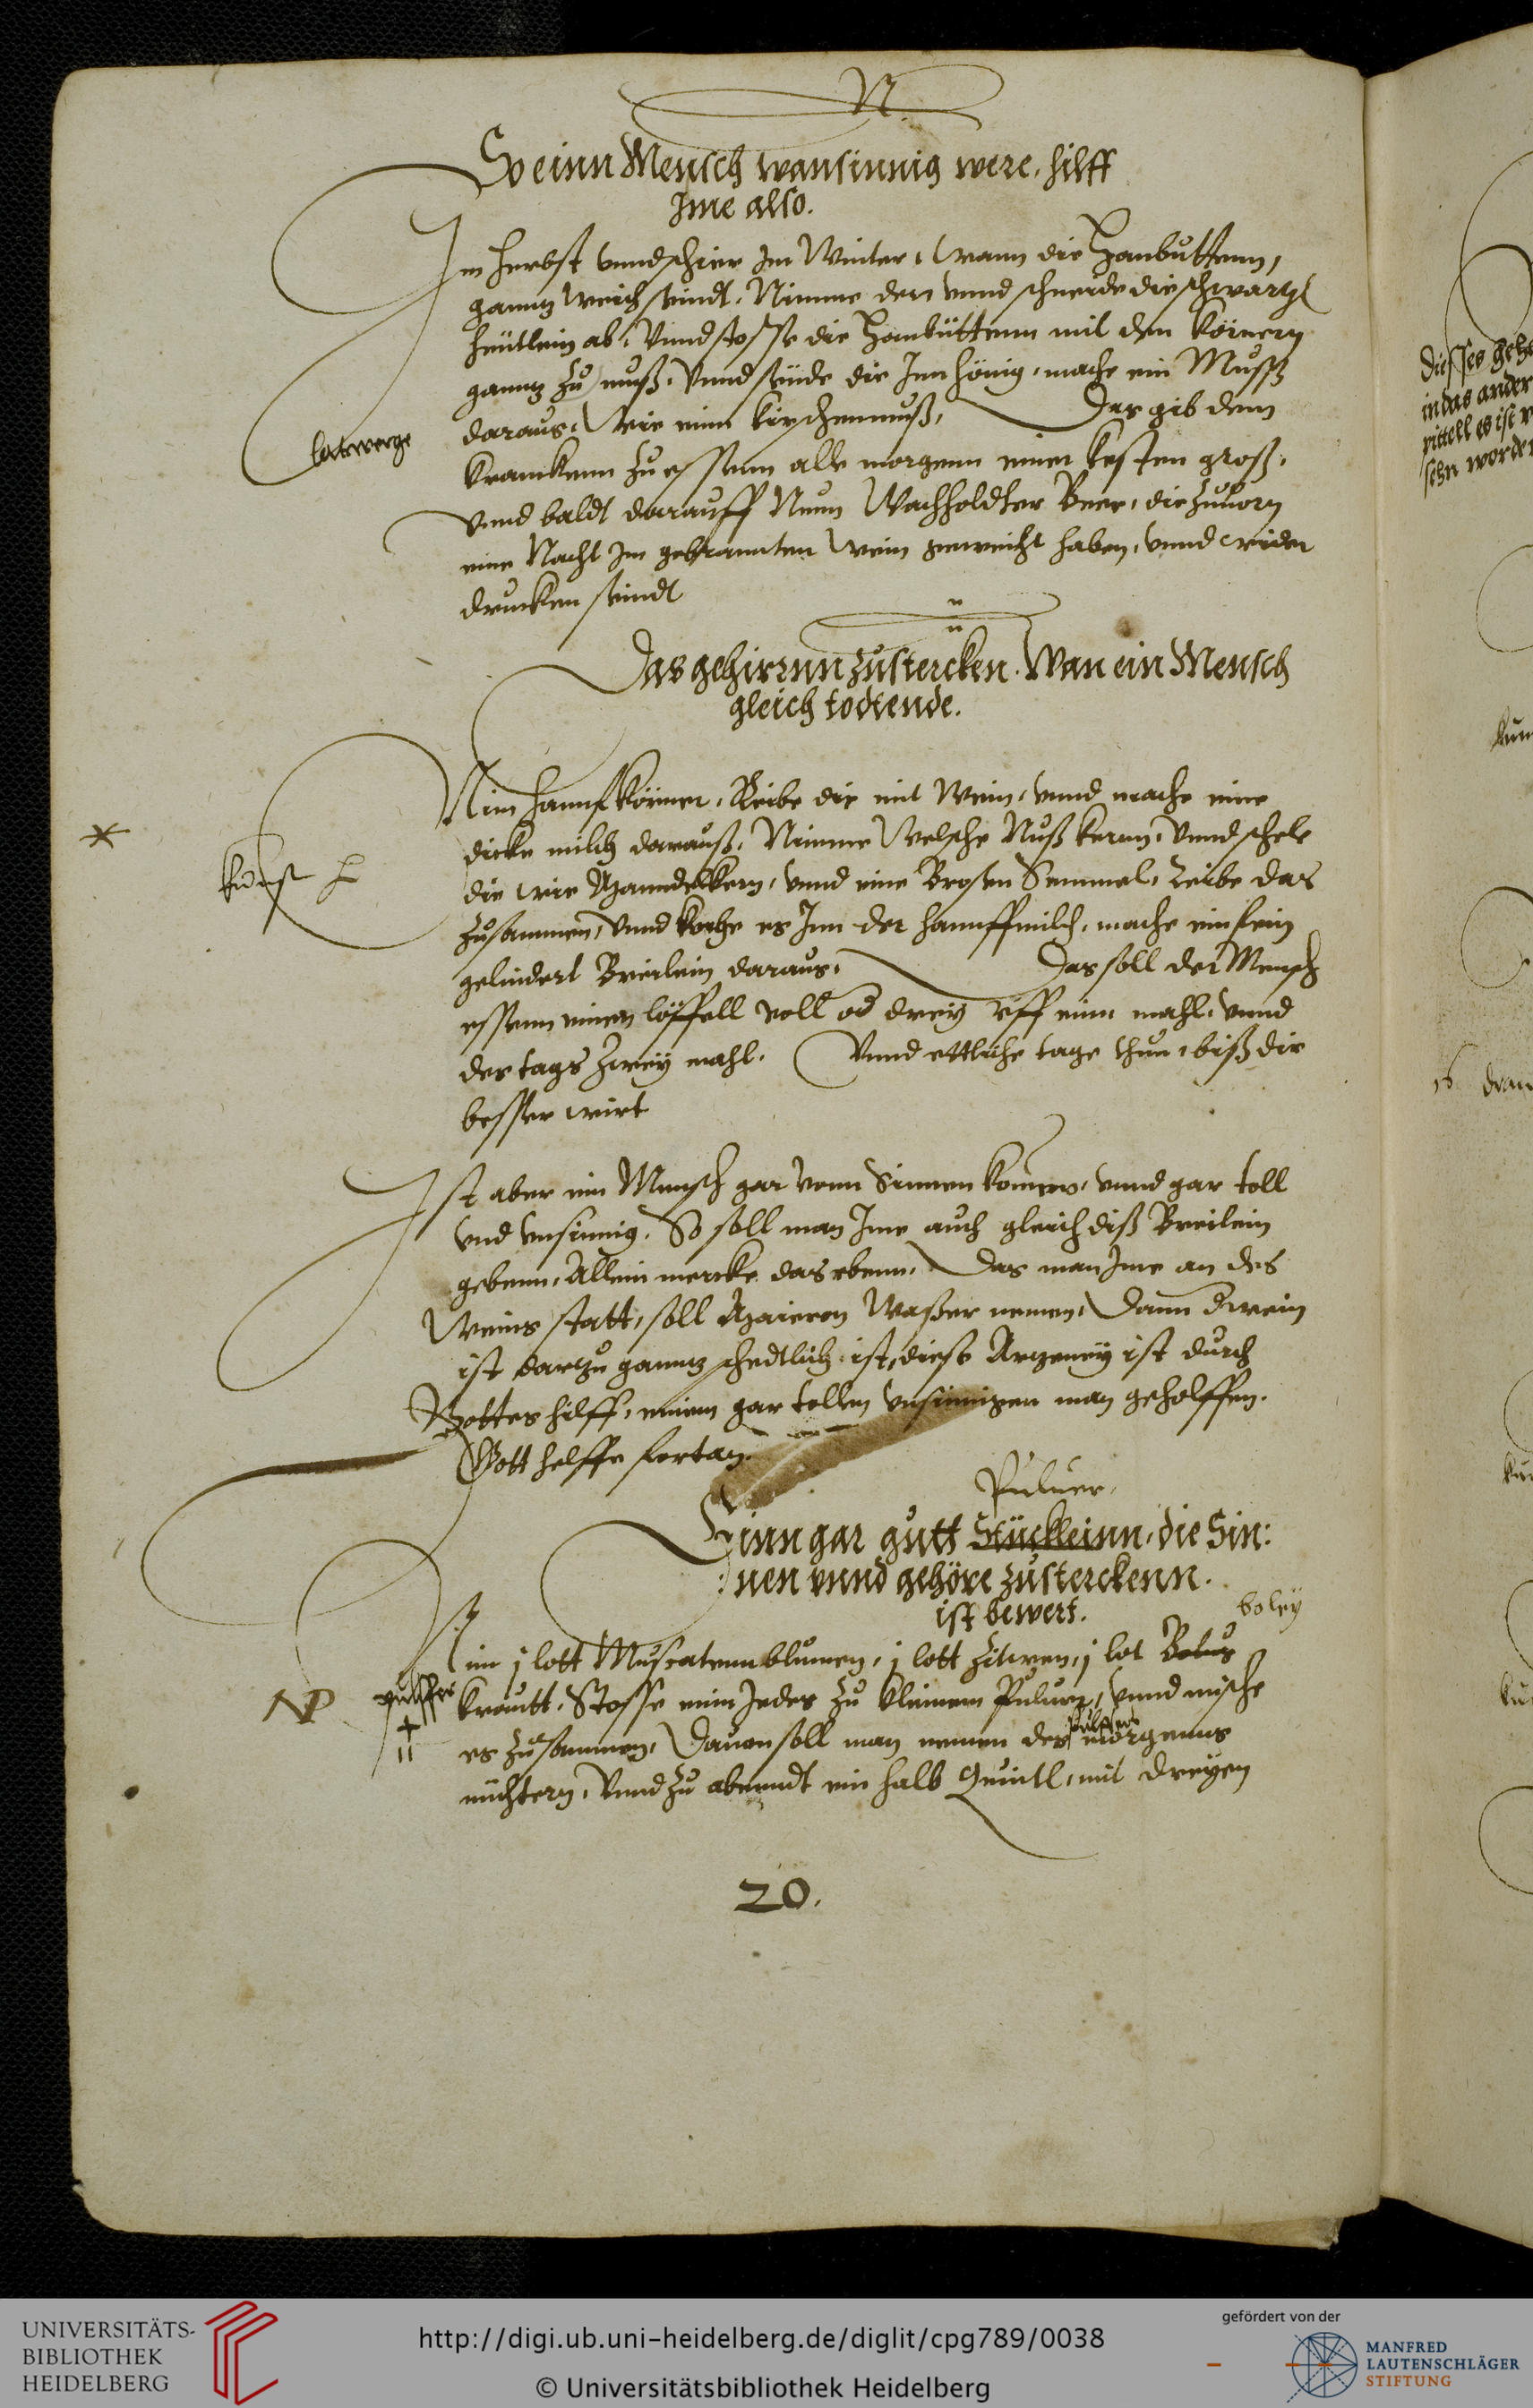 N.
So einn Mensch wansinnig were. hilff
Ime also.
Im herbst vnnd schier Im Winter, Wann die Hanbuttenn,
ganntz weich seindt. Nimme den vnnd schneide die schwartze
heutlein ab, Vnnd stosse die Hanbüttenn mit den körnern
ganntz zu muß, Vnnd seüde die Inn hönig, mache ein Musß
daraus, Wie einn kirschenmuß, Das gib dem
latwerge
Kranckenn zu essenn alle morgenn einer kesten groß,
Vnnd baldt darauff Neun Wachholdter Beer, die zuuorn
eine Nacht Im gebrannten Wein geweicht haben, vnnd wider
drucken seindt
Das gehirnn zu stercken. Wan ein Mensch
gleich todtende.
Nim hannfkörner, Reibe die mit Wein, vnnd mache eine
dicke milch darauß, Nimme Welsche Nuß kernn, Vnnd schele
kunst
die wie Manndelkern, vnnd eine Brosen Semmel, Reibe das
zusammen, Vnnd koche es Inn der hannffmilch, mache ein fein
gelindert Breilein daraus, Das soll der Mensch
essenn einen löffell voll od drey vff einn mahl, vnnd
des tags zwey mahl. Vnnd ettliche tage thun, biß dir
besser wirt
Ist aber ein Mensch gar vonn Sinnen kommen, vnnd gar toll
vnd vnsinnig. So soll man Ime auch gleich diß Breilein
gebenn, Allein mercke das ebenn, Das man Ime an des
Weins statt, soll Maieron Waßer nemen, Dann der wein
ist dartzu ganntz schedlich ist, diese Artzeney ist durch
Gottes hilff, einem gar tollen vnsinnigen man geholffen.
Gott helffe fortan.
Puluer,
Einn gar gutt Stückleinn, die Sin:
:nen vnnd gehöre zu sterckenn.
ist bewert.
boley
Nim j lott Muscatenn blumen, j lott Zitwen, j lot Betus
NP pulffer
krautt. Stosse einn Jedes zu kleinem Puluer, Vnnd mische
pulffers
es zusammen, Dauon soll man nemen des morgenns
nüchtern, Vnnd zu abenndt ein halb Quintl, mit dreyen
20.
Disses geh
in das ander
rittell es ist
sehn worden
UNIVERSITÄTS-
BIBLIOTHEK
HEIDELBERG
http://digi.ub.uni-heidelberg.de/diglit/cpg789/0038
© Universitätsbibliothek Heidelberg
gefördert von der
MANFRED
LAUTENSCHLÄGER
STIFTUNG